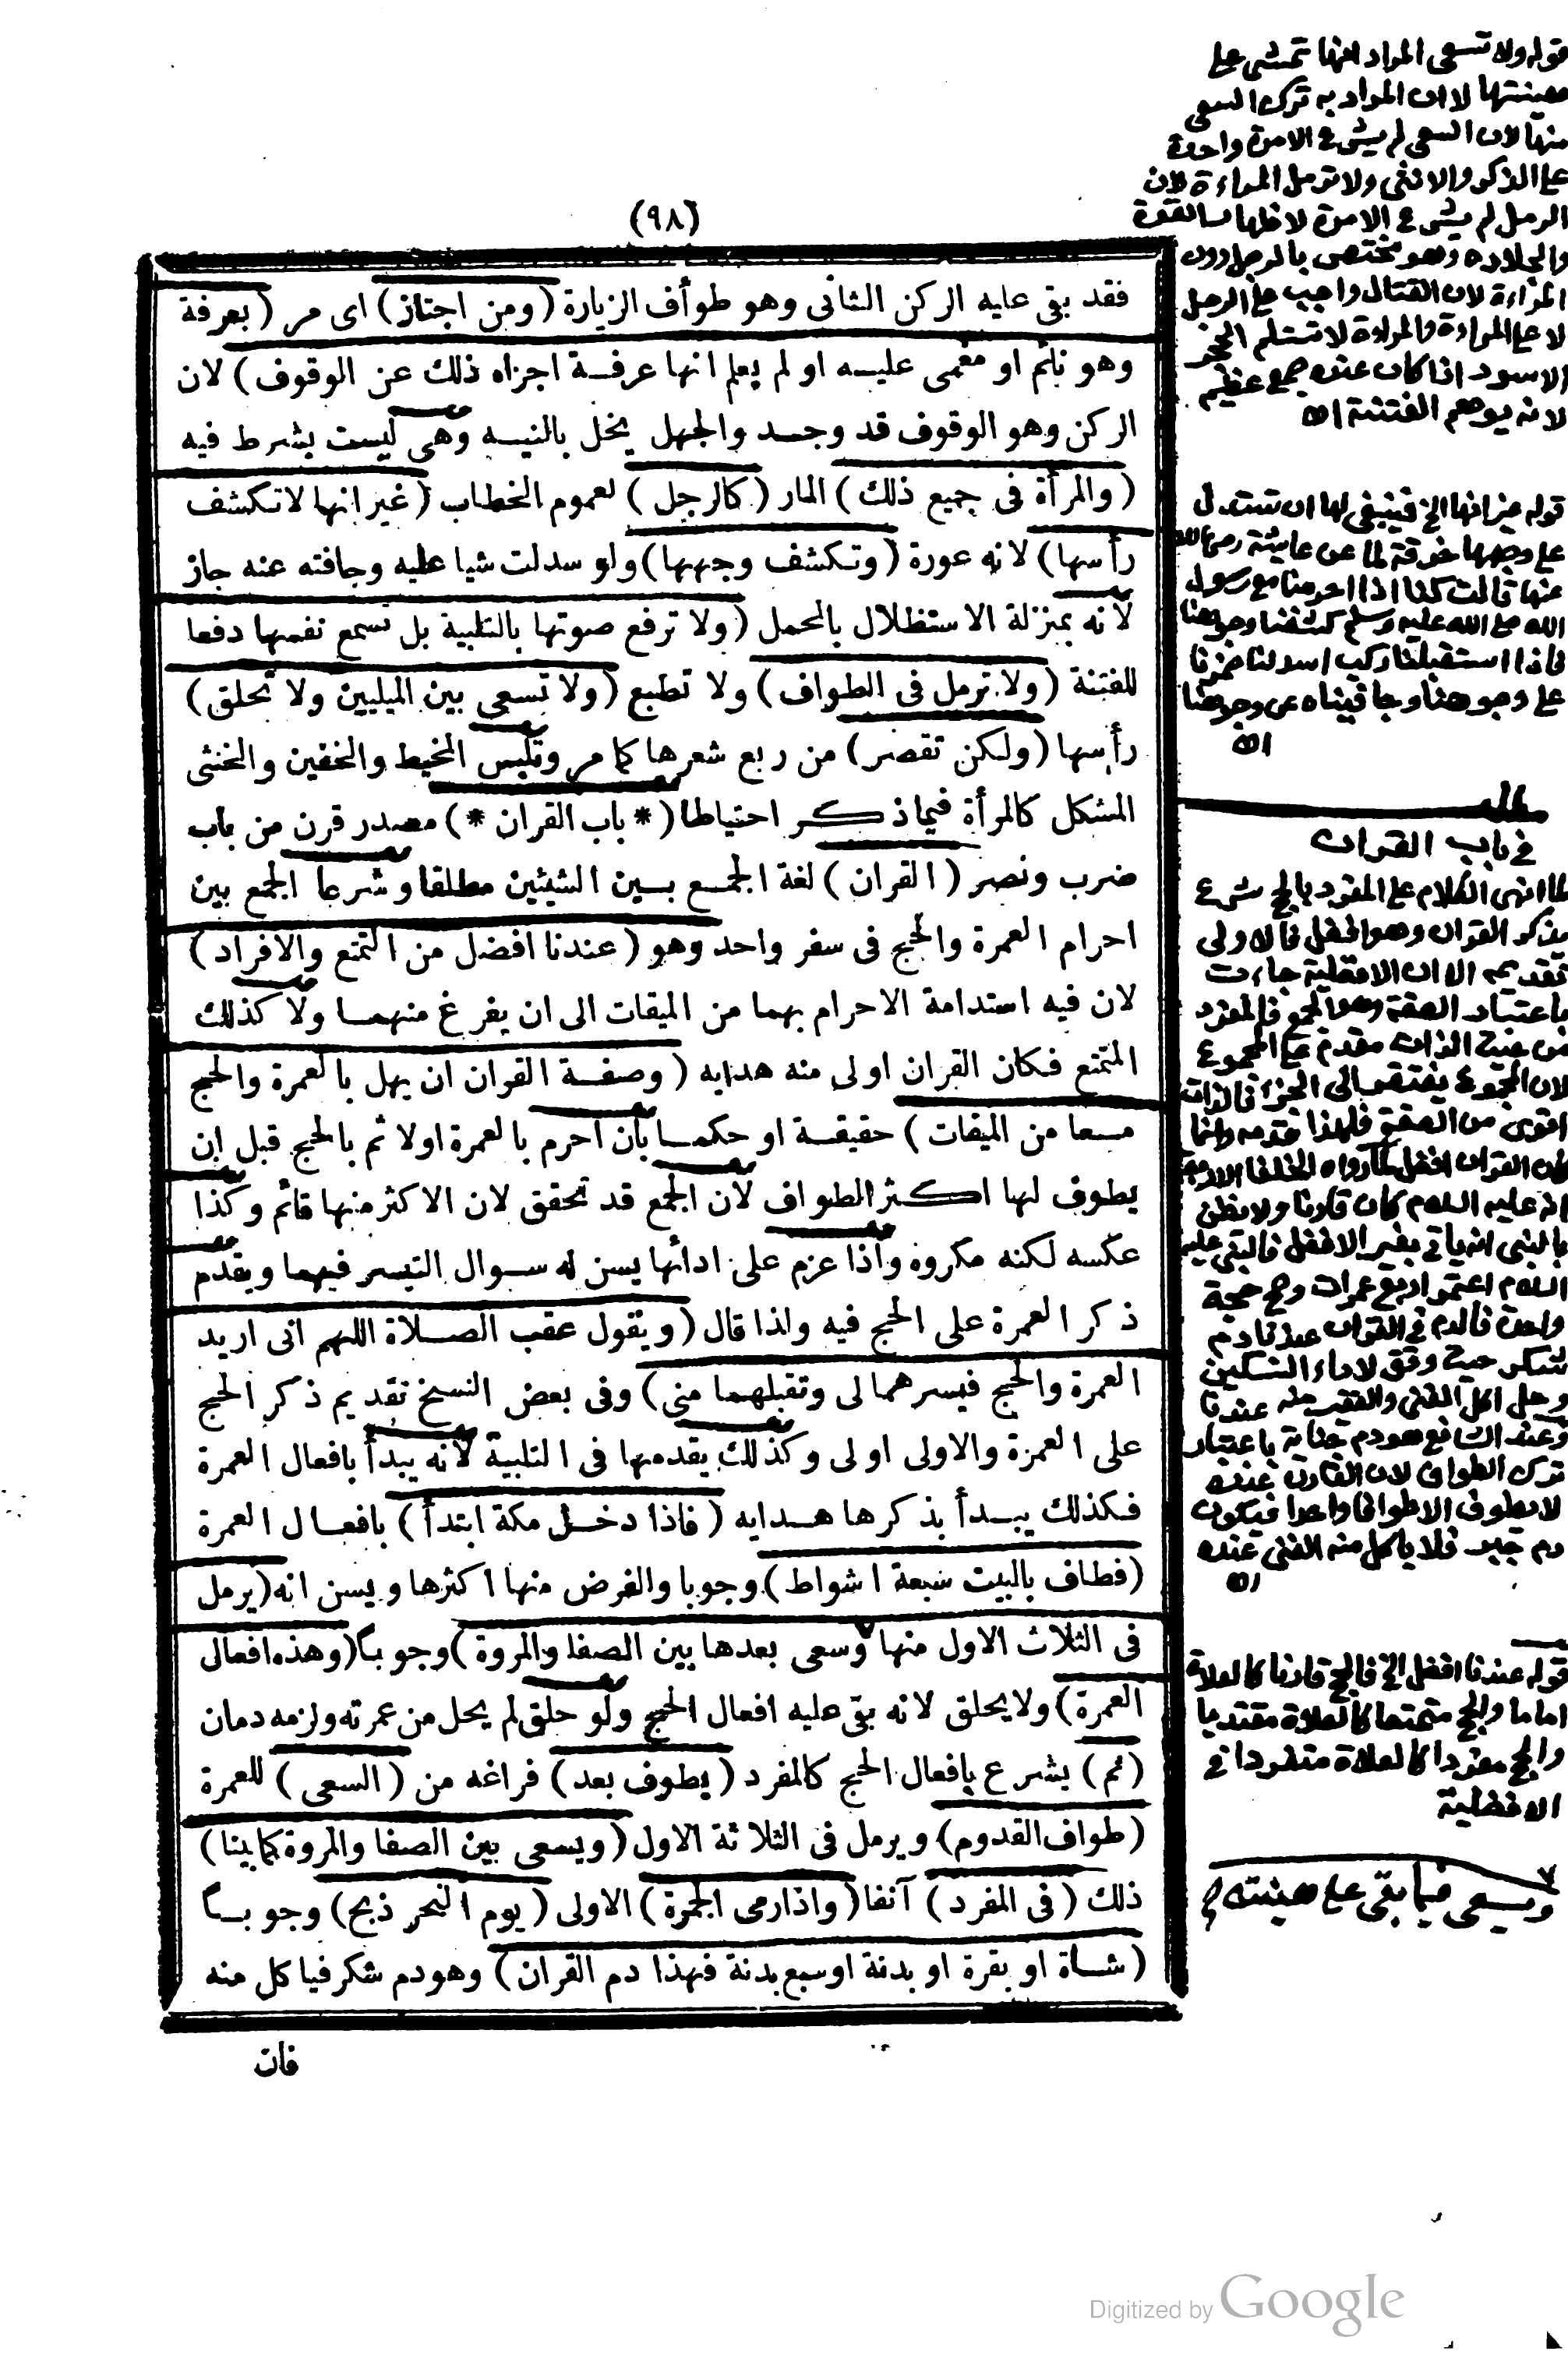 (٩٨)
فقد بقى عليه الركن الثانى وهو طواف الزيارة (ومن اجتاز) اى مر (بعرفة
وهو نائم او مغمى عليه او لم يعلم انها عرفة اجزاه ذلك عن الوقوف) لان
الركن وهو الوقوف قد وجد والجهل يخل بالنيه وهى ليست بشرط فيه
(والمرأة فى جميع ذلك) المار (كالرجل) لعموم الخطاب (غير انها لا تكشف
رأسها) لانه عورة (وتكشف وجهها) ولو سدلت شيا عليه وجافته عنه جاز
لانه بمنزلة الاستظلال بالمحمل (ولا ترفع صوتها بالتلبية بل تسمع نفسها دفعا
للفتنة (ولا ترمل فى الطواف) ولا تطبع (ولا تسعى بين الميليين ولا تحلق)
رأسها (ولكن تقصر) من ربع شعرها كما مر وتلبس المخيط والخفين والخنثى
المشكل كالمرأة فيما ذكر احتياطا (* باب القران *) مصدر قرن من باب
ضرب ونصر (القران) لغة الجمع بين الشيئين مطلقا وشرعا الجمع بين
احرام العمرة والحج فى سفر واحد وهو (عندنا افضل من التمتع والافراد)
لان فيه استدامة الاحرام بهما من الميقات الى ان يفرغ منهما ولا كذلك
المتمتع فكان القران اولى منه هدايه (وصفة القران ان يهل بالعمرة والحج
معا من الميقات) حقيقة او حكما بأن احرم بالعمرة اولا ثم بالحج قبل ان
يطوف لها اكثر الطواف لان الجمع قد تحقق لان الاكثر منها قائم وكذا
عكسه لكنه مكروه واذا عزم على ادائها يسن له سوال التيسر فيهما ويقدم
ذكر العمرة على الحج فيه ولذا قال (ويقول عقب الصلاة اللهم انى اريد
العمرة والحج فيسرهما لى وتقبلهما منى) وفى بعض النسخ تقديم ذكر الحج
على العمرة والاولى اولى وكذلك يقدمها فى التلبية لانه يبدأ بافعال العمرة
فكذلك يبدأ بذكرها هدايه (فاذا دخل مكة ابتدأ) بافعال العمرة
(فطاف بالبيت سبعة اشواط) وجوبا والفرض منها اكثرها ويسن انه (يرمل
فى الثلاث الاول منها وسعى بعدها بين الصفا والمروة) وجوبا (وهذه افعال
العمرة) ولا يحلق لانه بقى عليه افعال الحج ولو حلق لم يحل من عمرته ولزمه دمان
(ثم) يشرع بافعال الحج كالمفرد (يطوف بعد) فراغه من (السعى) للعمرة
(طواف القدوم) ويرمل فى الثلاثة الاول (ويسعى بين الصفا والمروة كما بينا)
ذلك (فى المفرد) آنفا (واذا رمى الجمرة) الاولى (يوم النحر ذبح) وجوبا
(شاة او بقرة او بدنة او سبع بدنة فهذا دم القران) وهو دم شكر فياكل منه
فان
قوله ولا تسعى المراد انها تمشى على
هينتها لا ان المراد به ترك السعى
منها لان السعى لم يشرع الا مرة واحدة
على الذكر والانثى ولا ترمل المراءة لان
الرمل لم يشرع الا مرة لاظهار القوة
والجلاده وهو مختص بالرجل دون
المراءة لان القتال واجب على الرجل
لا على المراءة والمراءة لا تستلم الحجر
الاسود اذا كان عنده جمع عظيم
لانه يوهم الفتنة اه
قوله غير انها الخ فينبغى لها ان تسدل
على وجهها خرقة لما عن عايشة رضى الله
عنها قالت كنا اذا احرمنا مع رسول
الله صلى الله عليه وسلم كشفنا وجوهنا
فاذا استقبلنا ركب اسدلنا خمرنا
على وجوهنا وجافيناه عن وجوهنا
اه
فى باب القران
لما انهى الكلام على المفرد بالحج شرع
بذكر القران وهو افضل فالاولى
تقديمه الا ان الافضلية جاءت
باعتبار الصفة وهو الجمع فالمفرد
من حيث الذات مقدم على المجموع
لان المجموع يفتقر الى الجزء فالذات
اقوى من الصفة فلهذا قدمه وانما
كان القران افضل لما رواه الخلفا
انه عليه السلام كان قارنا ولا يظن
بالنبى انه ياتى بغير الافضل فالنبى عليه
السلام اعتمر اربع عمرات وحج حجة
واحدة فالدم فى القران عندنا دم
شكر حيث وفق لاداء النسكين
وحل اكل الغنى والفقير منه عندنا
وعند الشافعى هو دم جناية باعتبار
ترك الطواف لان القارن عنده
لا يطوف الا طوافا واحدا فيكون
دم جبر فلا ياكل منه الغنى عنده
اه
قوله عندنا افضل الخ فالحج قارنا كالصلاة
اماما والحج متمتعا كالصلاة مقتديا
والحج مفردا كالصلاة منفردا فى
الافضلية
٧
ويسعى فيما بقى على هينته
Digitized by Google